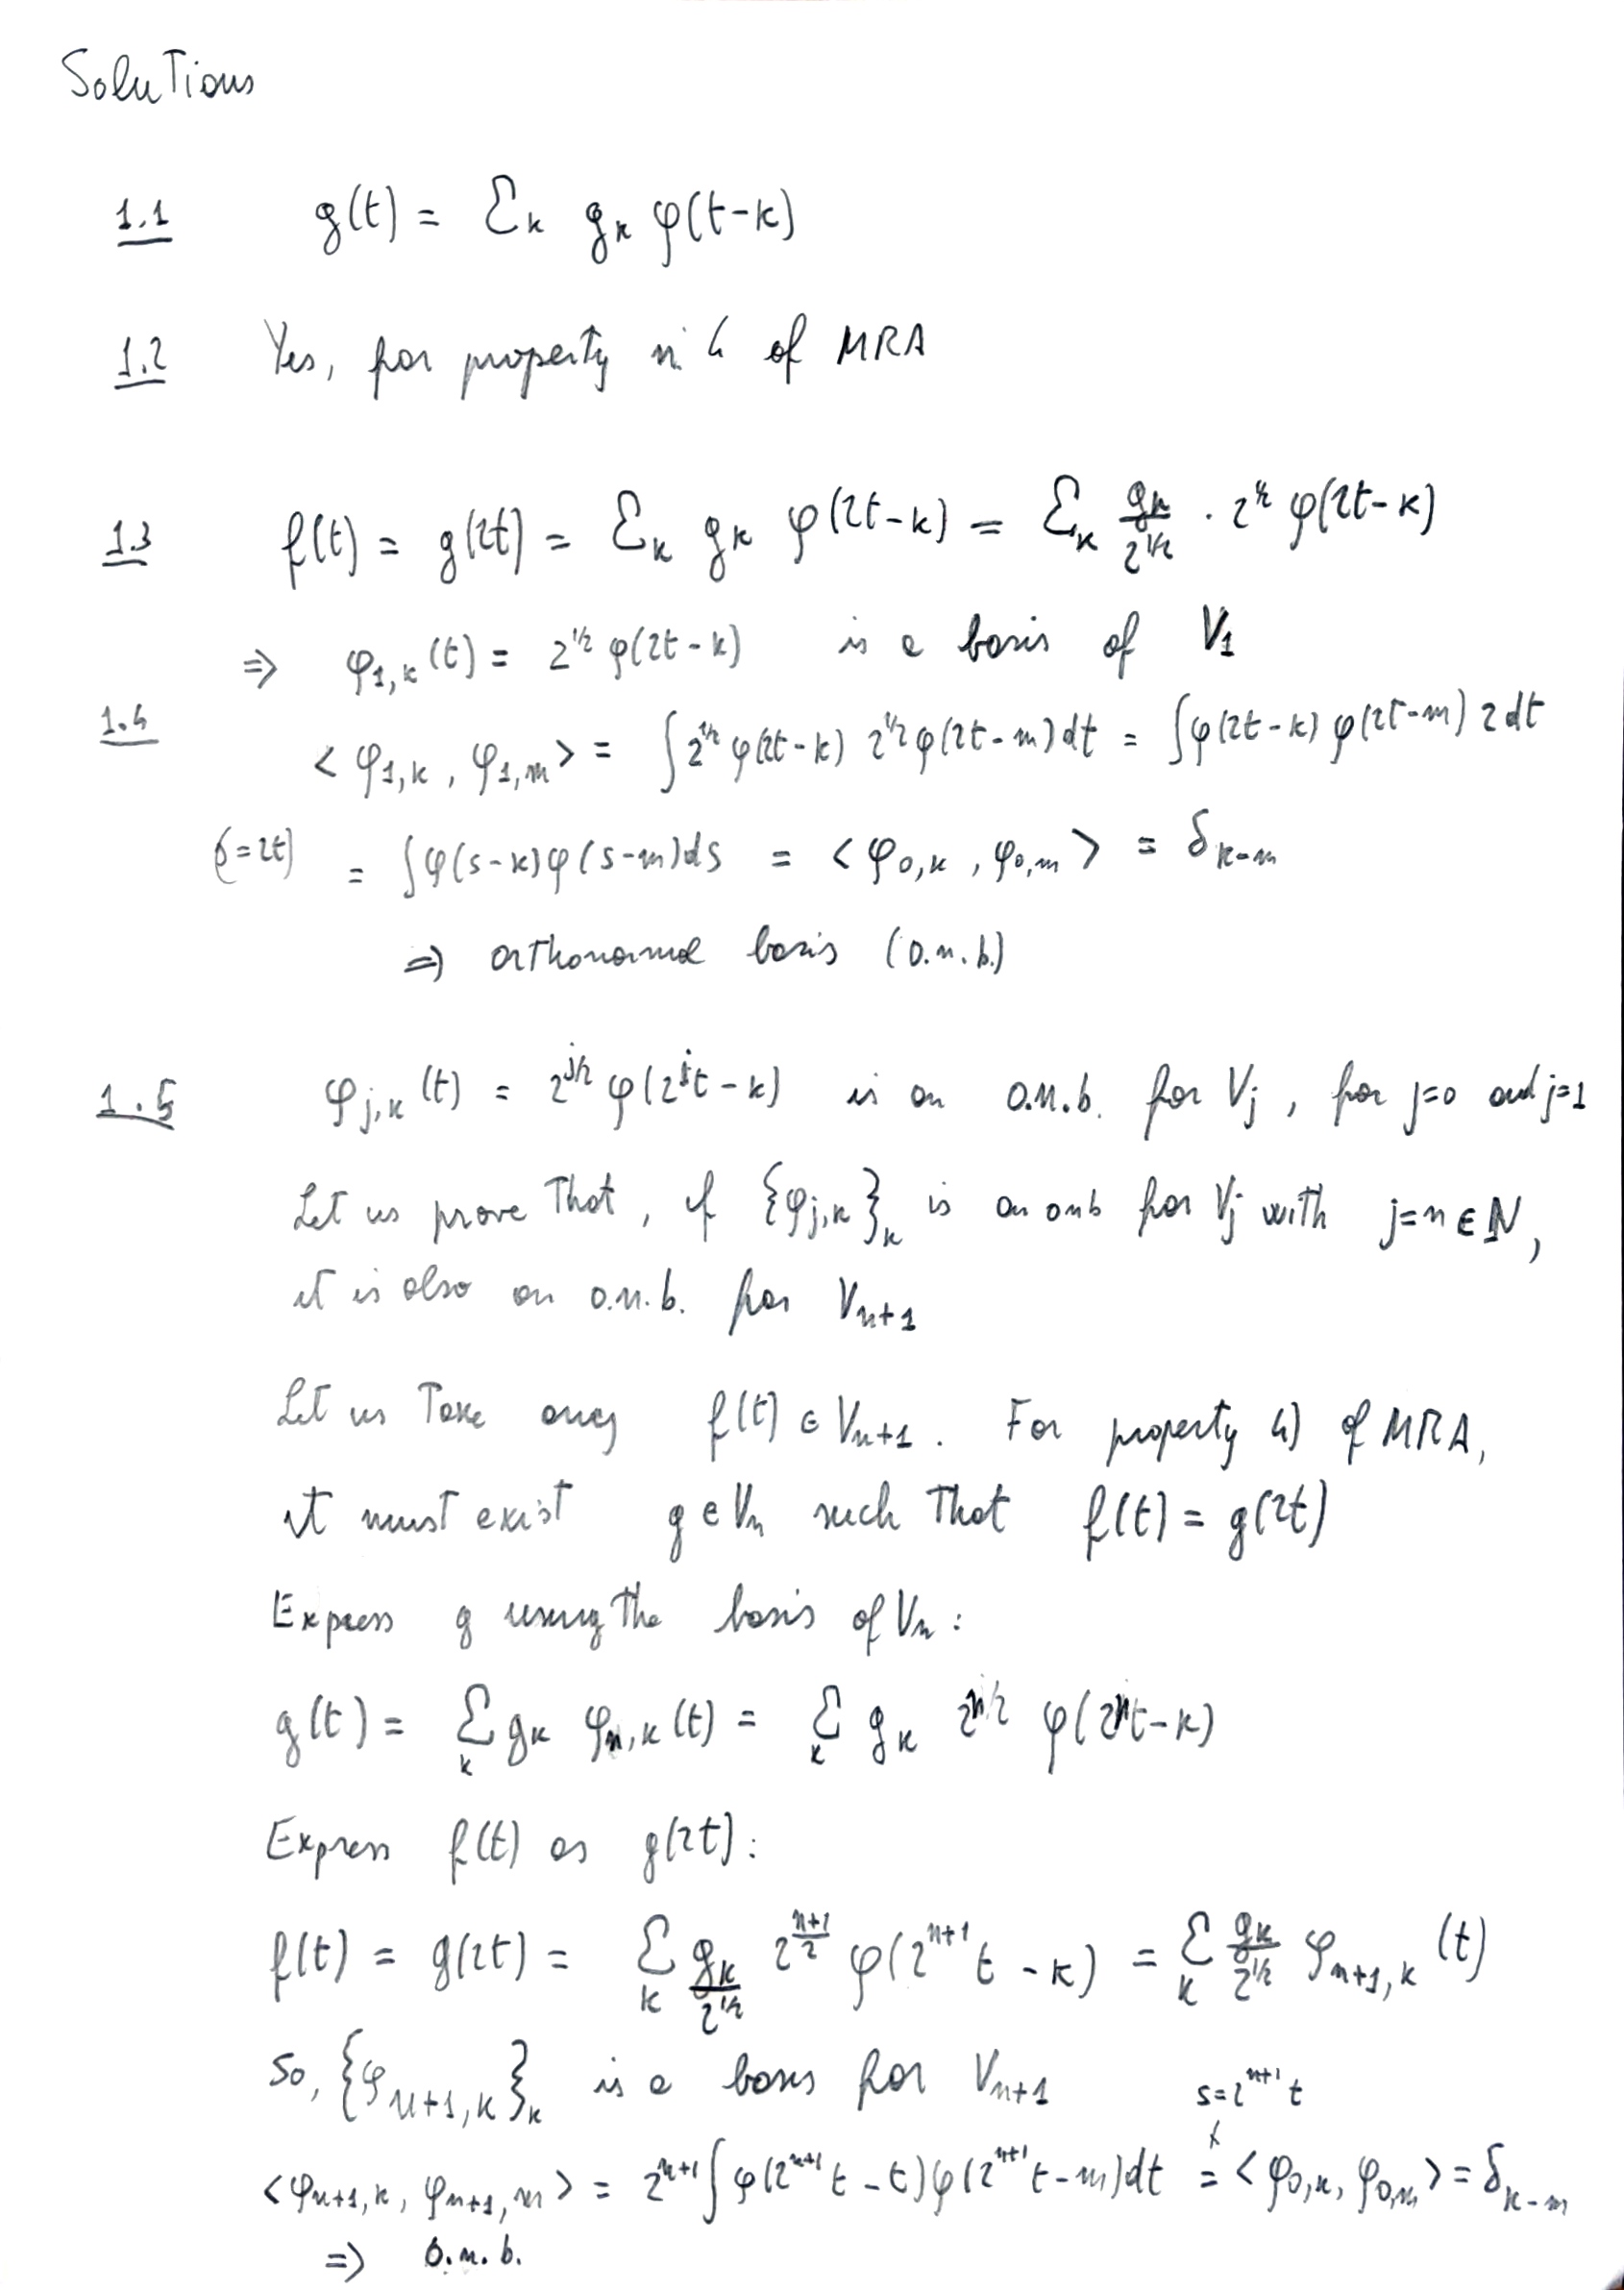 Solutions
1.1 g(t) = Σk gk φ(t-k)
1.2 Yes, for property n. 4 of MRA
1.3 f(t) = g(2t) = Σk gk φ(2t-k) = Σk gk/2^1/2 · 2^1/2 φ(2t-k)
⇒ φ1,k(t) = 2^1/2 φ(2t-k) is a basis of V1
1.4
<φ1,k , φ1,m> = ∫ 2^1/2 φ(2t-k) 2^1/2 φ(2t-m) dt = ∫ φ(2t-k) φ(2t-m) 2 dt
(s=2t) = ∫ φ(s-k) φ(s-m) ds = <φ0,k , φ0,m> = δk-m
⇒ orthonormal basis (o.n.b.)
1.5 φj,k(t) = 2^j/2 φ(2^j t - k) is an o.n.b. for Vj , for j=0 and j=1
Let us prove that, if {φj,k}k is an onb for Vj with j=n∈N,
it is also an o.n.b. for Vn+1
Let us take any f(t) ∈ Vn+1. For property 4) of MRA,
it must exist g ∈ Vn such that f(t) = g(2t)
Express g using the basis of Vn :
g(t) = Σk gk φn,k(t) = Σk gk 2^n/2 φ(2^n t-k)
Express f(t) as g(2t):
f(t) = g(2t) = Σk gk/2^1/2 2^(n+1)/2 φ(2^n+1 t - k) = Σk gk/2^1/2 φn+1,k (t)
So, {φn+1,k}k is a basis for Vn+1
s=2^n+1 t
<φn+1,k, φn+1,m> = 2^n+1 ∫ φ(2^n+1 t - t) φ(2^n+1 t-m) dt = <φ0,k, φ0,m> = δk-m
⇒ o.n.b.